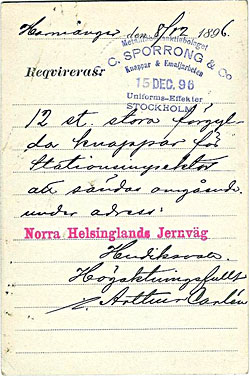 Harmånger den 8/12 1896.
Metallfabriksaktiebolaget
C. SPORRONG & Co
Knappar & Emaljarbeten
15 DEC. 96
Uniforms-Effekter
STOCKHOLM
Reqvireras
12 st. stora förgyl-
da knappar för
Stationsinspektor
att sändas omgående
under adress:
Norra Helsinglands Jernväg
Hudiksvall.
Högaktningsfullt
Arthur Carlén